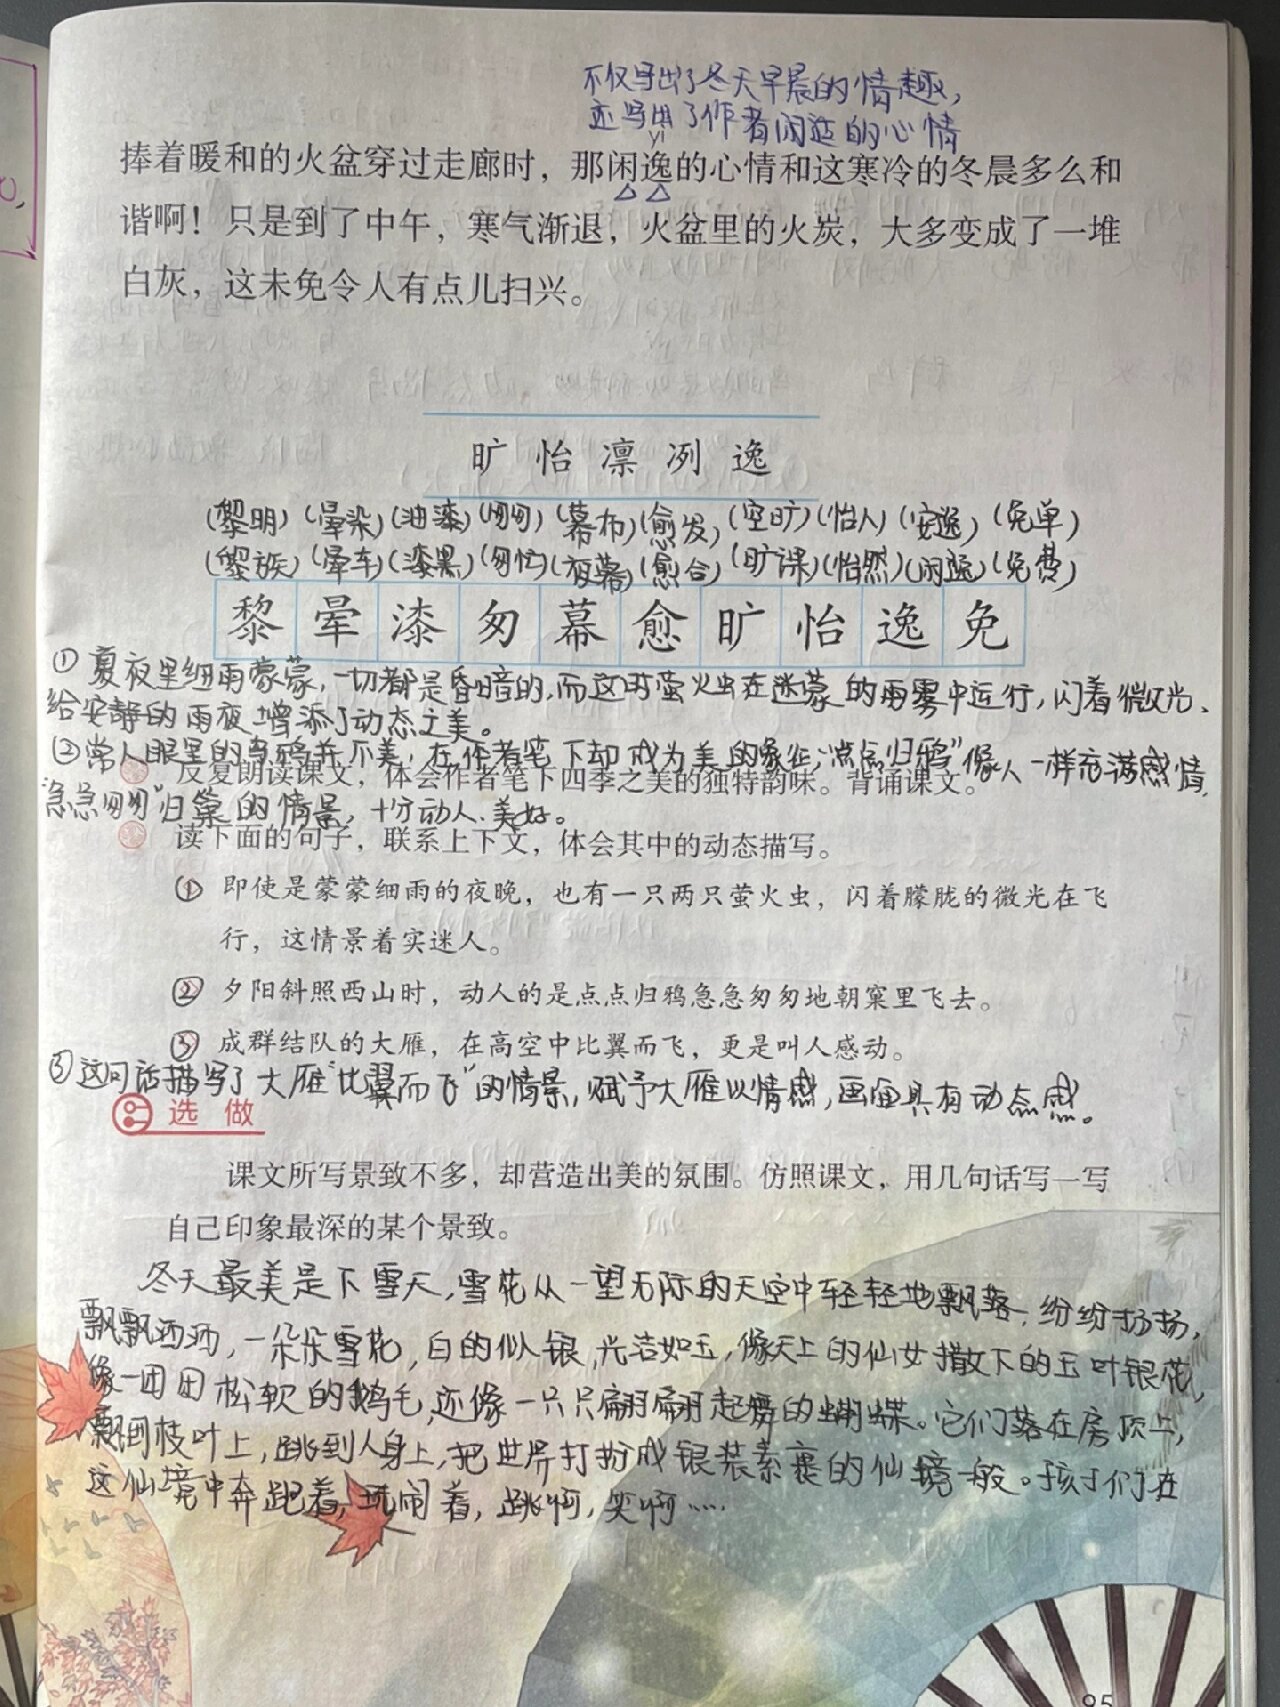 不仅写出了冬天早晨的情趣，
还写出了作者闲适的心情
yì
捧着暖和的火盆穿过走廊时，那闲逸的心情和这寒冷的冬晨多么和
谐啊！只是到了中午，寒气渐退，火盆里的火炭，大多变成了一堆
白灰，这未免令人有点儿扫兴。
旷 怡 凛 冽 逸
(黎明)(晕染)(油漆)(匆匆)(幕布)(愈发)(空旷)(怡人)(安逸)(免单)
(黎族)(晕车)(漆黑)(匆忙)(夜幕)(愈合)(旷课)(怡然)(闲逸)(免费)
黎 晕 漆 匆 幕 愈 旷 怡 逸 免
①夏夜里细雨蒙蒙，一切都是昏暗的，而这时萤火虫在迷蒙的雨雾中运行，闪着微光、
给安静的雨夜增添了动态之美。
②常人眼里的乌鸦并不美，在作者笔下却成为美的象征，"点点归鸦"像人一样充满感情，
反复朗读课文，体会作者笔下四季之美的独特韵味。背诵课文。
"急急匆匆"归巢的情景，十分动人、美好。
读下面的句子，联系上下文，体会其中的动态描写。
① 即使是蒙蒙细雨的夜晚，也有一只两只萤火虫，闪着朦胧的微光在飞
行，这情景着实迷人。
② 夕阳斜照西山时，动人的是点点归鸦急急匆匆地朝窠里飞去。
③ 成群结队的大雁，在高空中比翼而飞，更是叫人感动。
③这句话描写了大雁"比翼而飞"的情景，赋予大雁以情感，画面具有动态感。
选做
课文所写景致不多，却营造出美的氛围。仿照课文，用几句话写一写
自己印象最深的某个景致。
冬天最美是下雪天，雪花从一望无际的天空中轻轻地飘落，纷纷扬扬，
飘飘洒洒，一朵朵雪花，白的似银，光洁如玉，像天上的仙女撒下的玉叶银花，
像一团团松软的鹅毛，还像一只只翩翩起舞的蝴蝶。它们落在房顶上，
飘到枝叶上，跳到人身上，把世界打扮成银装素裹的仙境一般。孩子们在
这仙境中奔跑着，玩闹着，跳啊，笑啊……
95